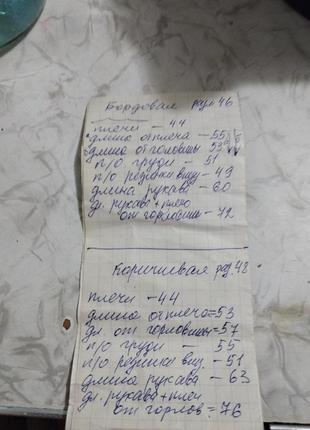 Бордовая раз 46
плечи - 44
длина от плеча - 55
длина от головины 53
п/о груди - 51
п/о резинки внизу - 49
длина рукава - 60
дл. рукава + плечо
от горловины - 72
Коричневая раз. 48
плечи - 44
длина от плеча = 53
дл. от горловины = 57
п/о груди - 55
п/о резинки вниз. - 51
длина рукава - 63
дл. рукава + плеч
от горлов = 76